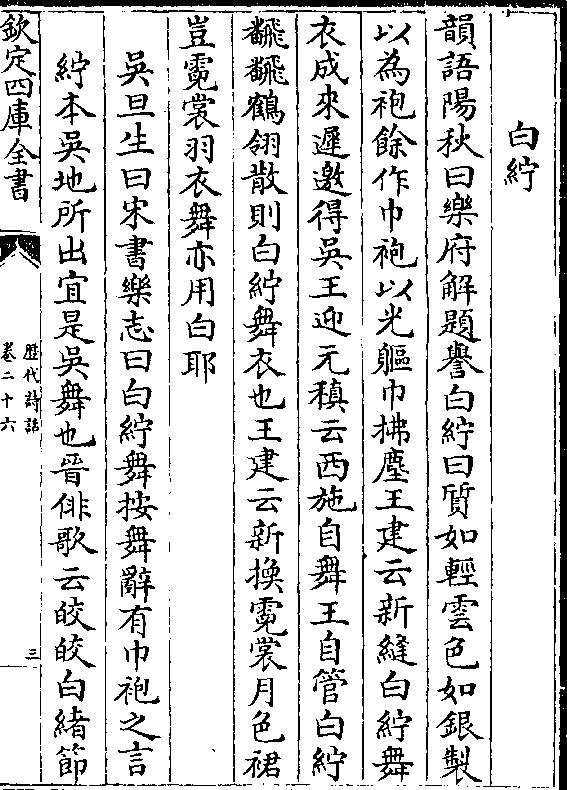 白紵
韻語陽秋曰樂府解題譽白紵曰質如輕雲色如銀製
以為袍餘作巾袍以光軀巾拂塵王建云新縫白紵舞
衣成來遲邀得吳王迎元稹云西施自舞王自管白紵
翻翻鶴翎散則白紵舞衣也王建云新換霓裳月色裙
豈霓裳羽衣舞亦用白耶
吳旦生曰宋書樂志曰白紵舞按舞辭有巾袍之言
紵本吳地所出宜是吳舞也晉俳歌云皎皎白緒節
欽定四庫全書
歷代詩話
卷二十六
三